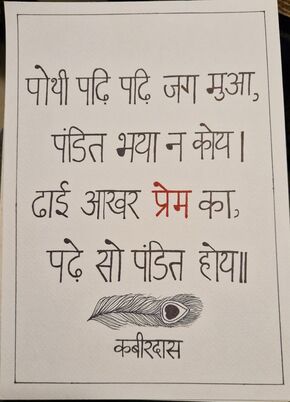 पोथी पढ़ि पढ़ि जग मुआ,
पंडित भया न कोय।
ढाई आखर प्रेम का,
पढ़े सो पंडित होय॥
कबीरदास